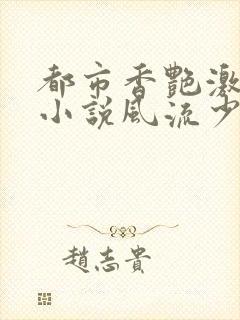 都市香艷激
小說風流少
趙志貴